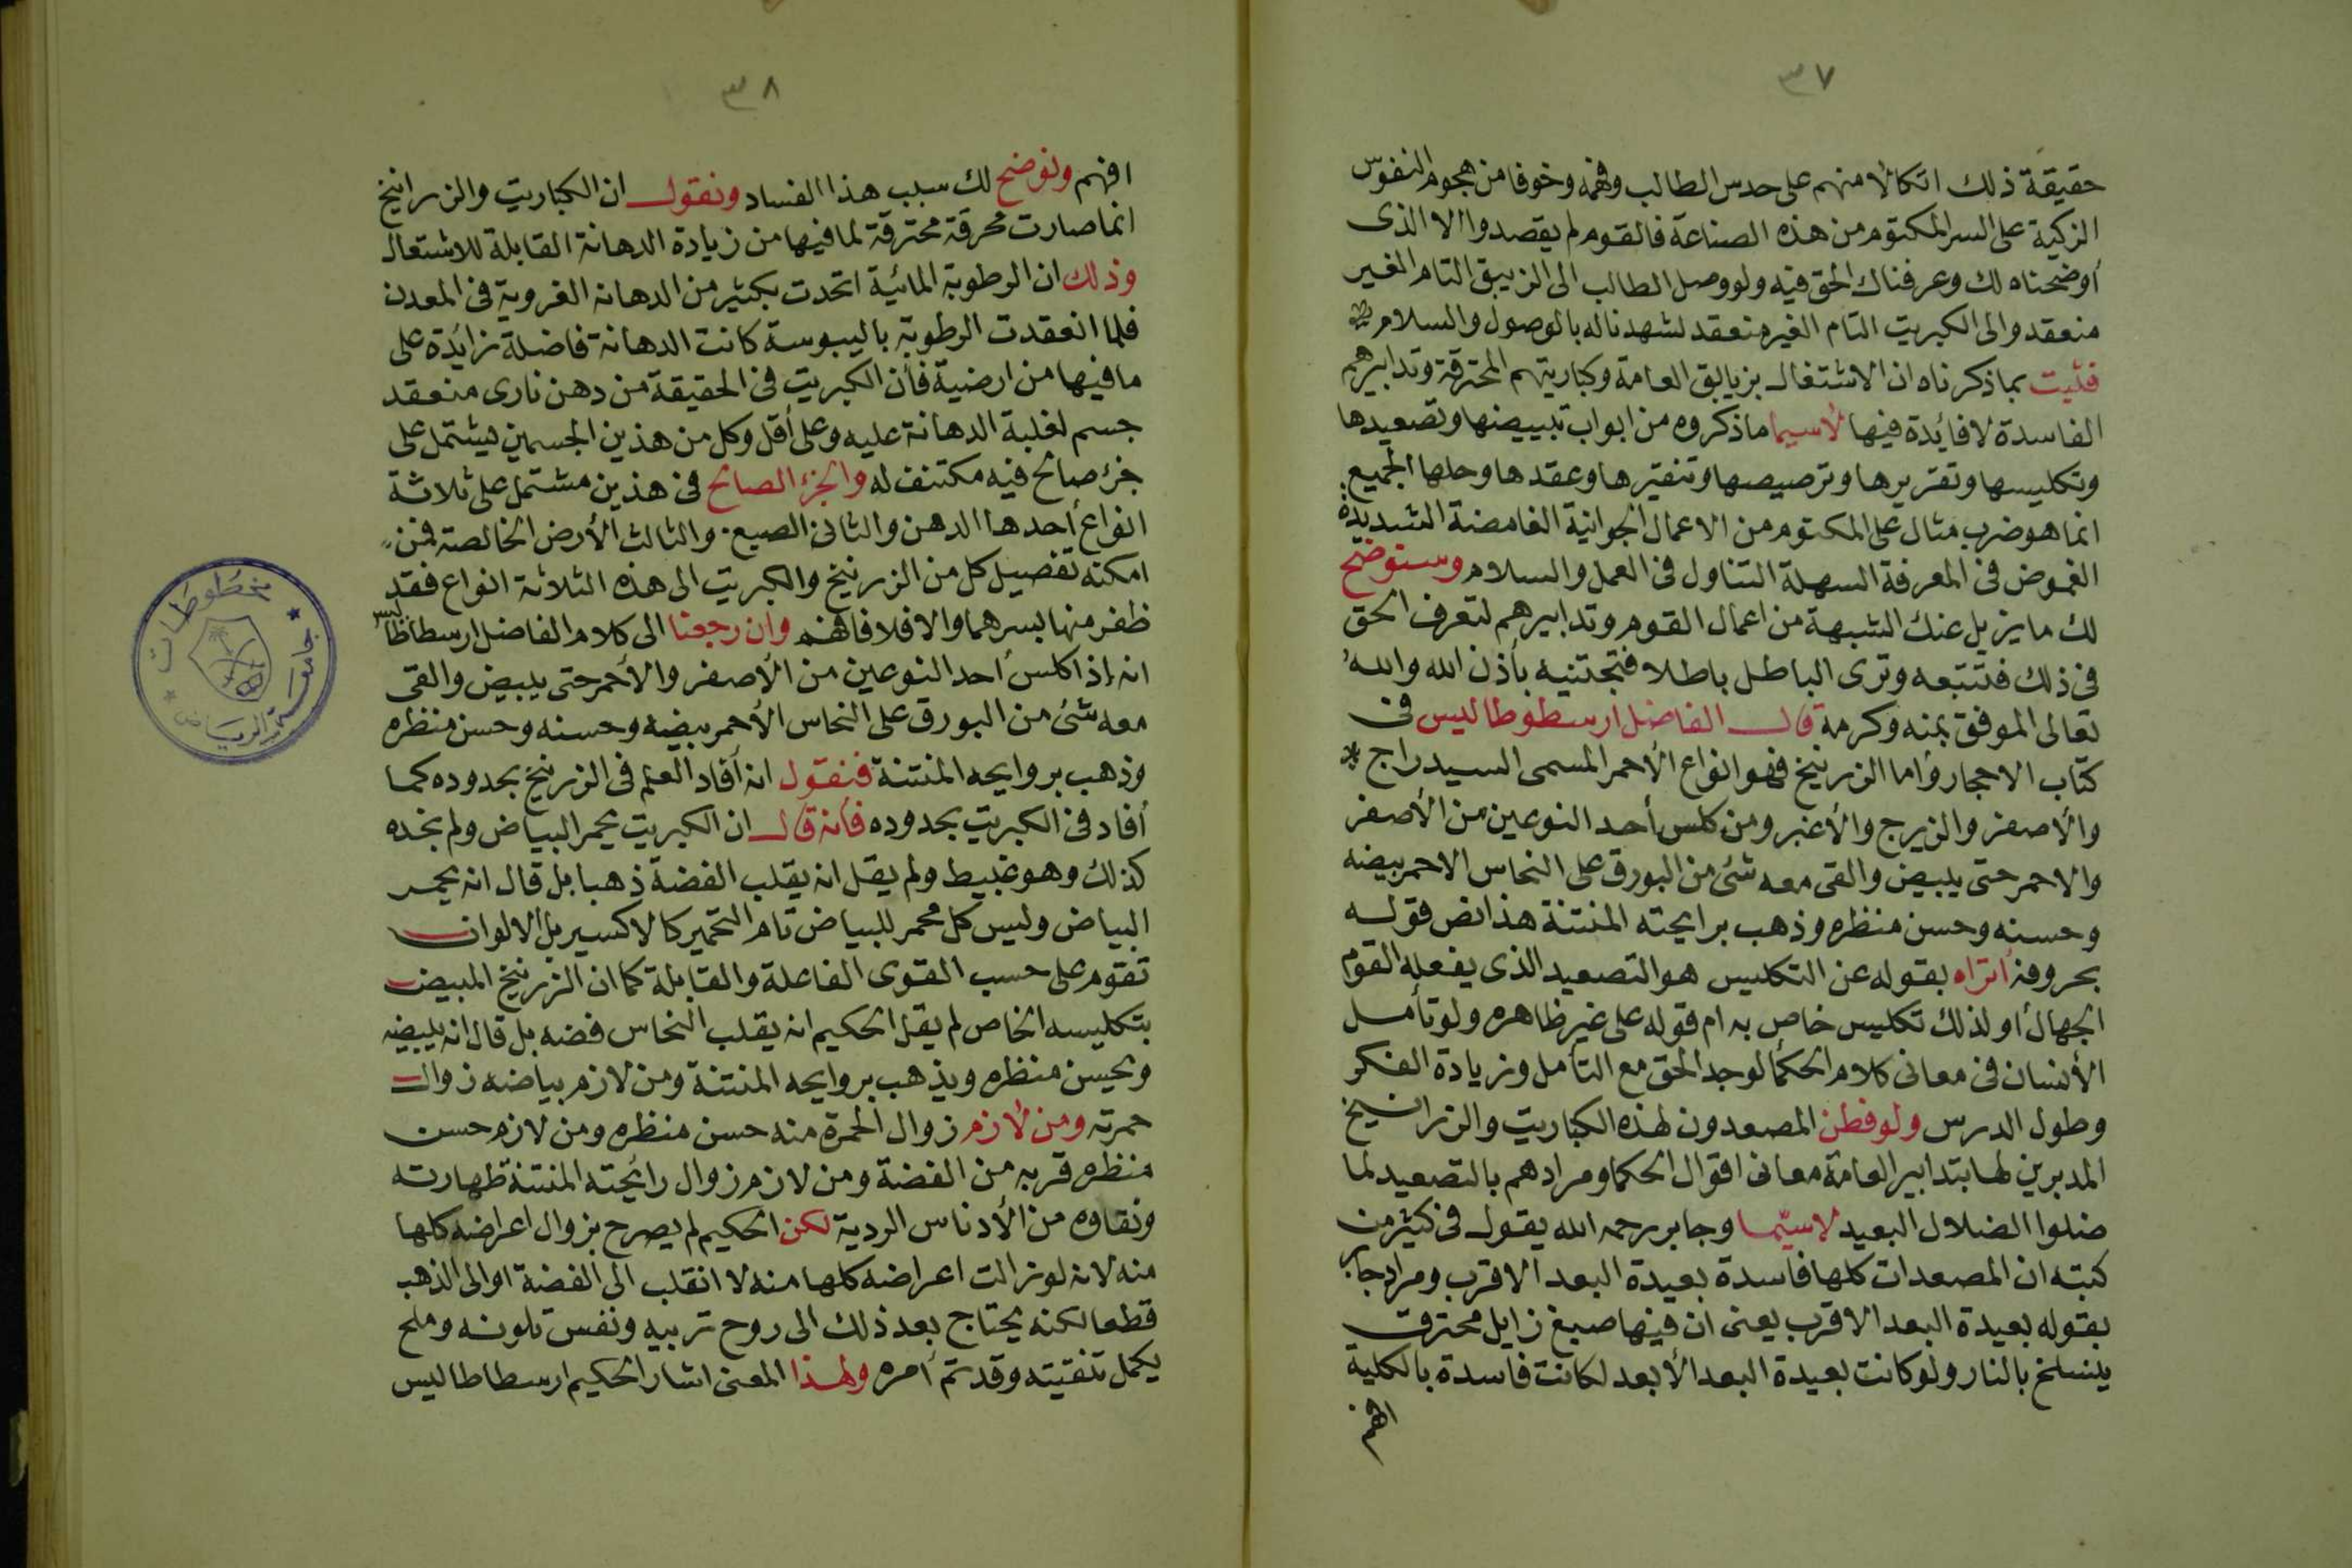 ٣٧
حقيقة ذلك اتكالا منهم على حدس الطالب وفهمه وخوفا من هجوم النفوس
الزكية على السر المكتوم من هذه الصناعة فالقوم لم يقصدوا الا الذى
أوضحناه لك وعرفناك الحق فيه ولو وصل الطالب الى الزيبق التام الغير
منعقد والى الكبريت التام الغير منعقد لشهدنا له بالوصول والسلام
فثبت بما ذكرناه ان الاشتغال بزيابق العامة وكباريتهم المحترقة وتدابيرهم
الفاسدة لا فايدة فيها لاسيما ما ذكروه من ابواب تبييضها وتصعيدها
وتكليسها وتقريرها وترصيصها وتنقيرها وعقدها وحلها الجميع
انما هو ضرب مثال على المكتوم من الاعمال الجوانية الغامضة الشديدة
الغموض فى المعرفة السهلة التناول فى العمل والسلام وسنوضح
لك ما يزيل عنك الشبهة من اعمال القوم وتدابيرهم لتعرف الحق
فى ذلك فتتبعه وترى الباطل باطلا فتجتنبه بأذن الله والله
تعالى الموفق بمنه وكرمه قال الفاضل ارسطوطاليس فى
كتاب الاحجار وأما الزرنيخ فهو انواع الأحمر المسمى السيدراج
والأصفر والزيرج والأغبر ومن كلس أحد النوعين من الأصفر
والاحمر حتى يبيض والقى معه شئ من البورق على النحاس الاحمر بيضه
وحسنه وحسن منظره وذهب برايحته المنتنة هذا نص قوله
بحروفه اتراه بقوله عن التكليس هو التصعيد الذى يفعله القوم
الجهال أو لذلك تكليس خاص به ام قوله على غير ظاهره ولو تأمل
الأنسان فى معانى كلام الحكما لوجد الحق مع التأمل وزيادة الفكر
وطول الدرس ولو فطن المصعدون لهذه الكباريت والزرانيخ
المدبرين لها بتدابير العامة معانى اقوال الحكما ومرادهم بالتصعيد لما
ضلوا الضلال البعيد لاسيما وجابر رحمه الله يقول فى كثير من
كتبه ان المصعدات كلها فاسدة بعيدة البعد الاقرب ومراد جابر
بقوله بعيدة البعد الاقرب يعنى ان فيها صبغ زايل محترق
ينسلخ بالنار ولو كانت بعيدة البعد الأبعد لكانت فاسدة بالكلية
افهم
٣٨
افهم ونوضح لك سبب هذا الفساد ونقول ان الكباريت والزرانيخ
انما صارت محرقة محترقة لما فيها من زيادة الدهانة القابلة للاشتعال
وذلك ان الرطوبة المائية اتحدت بكثير من الدهانه الغروية فى المعدن
فلما انعقدت الرطوبة باليبوسة كانت الدهانة فاضلة زائدة على
ما فيها من ارضية فأن الكبريت فى الحقيقة من دهن نارى منعقد
جسم لغلبة الدهانة عليه وعلى أقل وكل من هذين الجسمين يشتمل على
جزء صالح فيه مكتنف له والجزء الصالح فى هذين مشتمل على ثلاثة
انواع أحدها الدهن والثانى الصبغ والثالث الأرض الخالصة فمن
امكنه تفصيل كل من الزرنيخ والكبريت الى هذه الثلاثة انواع فقد
ظفر منها بسرهما والا فلا فافهم وان رجعنا الى كلام الفاضل ارسطاطاليس
انه إذا كلس أحد النوعين من الأصفر والأحمر حتى يبيض والقى
معه شئ من البورق على النحاس الأحمر بيضه وحسنه وحسن منظره
وذهب بروايحه المنتنة فنقول انه أفاد العلم فى الزرنيخ بحدوده كما
أفاد فى الكبريت بحدوده فأنه قال ان الكبريت يحمر البياض ولم نجده
كذلك وهو غبيط ولم يقل انه يقلب الفضة ذهبا بل قال انه يحمر
البياض وليس كل محمر للبياض تام التحمير كالاكسير بل الالوان
تقوم على حسب القوى الفاعلة والقابلة كما ان الزرنيخ المبيض
بتكليسه الخاص لم يقل الحكيم انه يقلب النحاس فضه بل قال انه يبيضه
ويحسن منظره ويذهب بروايحه المنتنة ومن لازم بياضه زوال
حمرته ومن لازم زوال الحمرة منه حسن منظره ومن لازم حسن
منظره قربه من الفضة ومن لازم زوال رائحته المنتنة طهارته
ونقاوه من الأدناس الردية لكن الحكيم لم يصرح بزوال اعراضه كلها
منه لانه لو زالت اعراضه كلها منه لا انقلب الى الفضة او الى الذهب
قطعا لكنه يحتاج بعد ذلك الى روح تربيه ونفس تلونه وملح
يكمل تنقيته وقد تم أمره ولهذا المعنى اشار الحكيم ارسطاطاليس
مخطوطات
جامعة الرياض